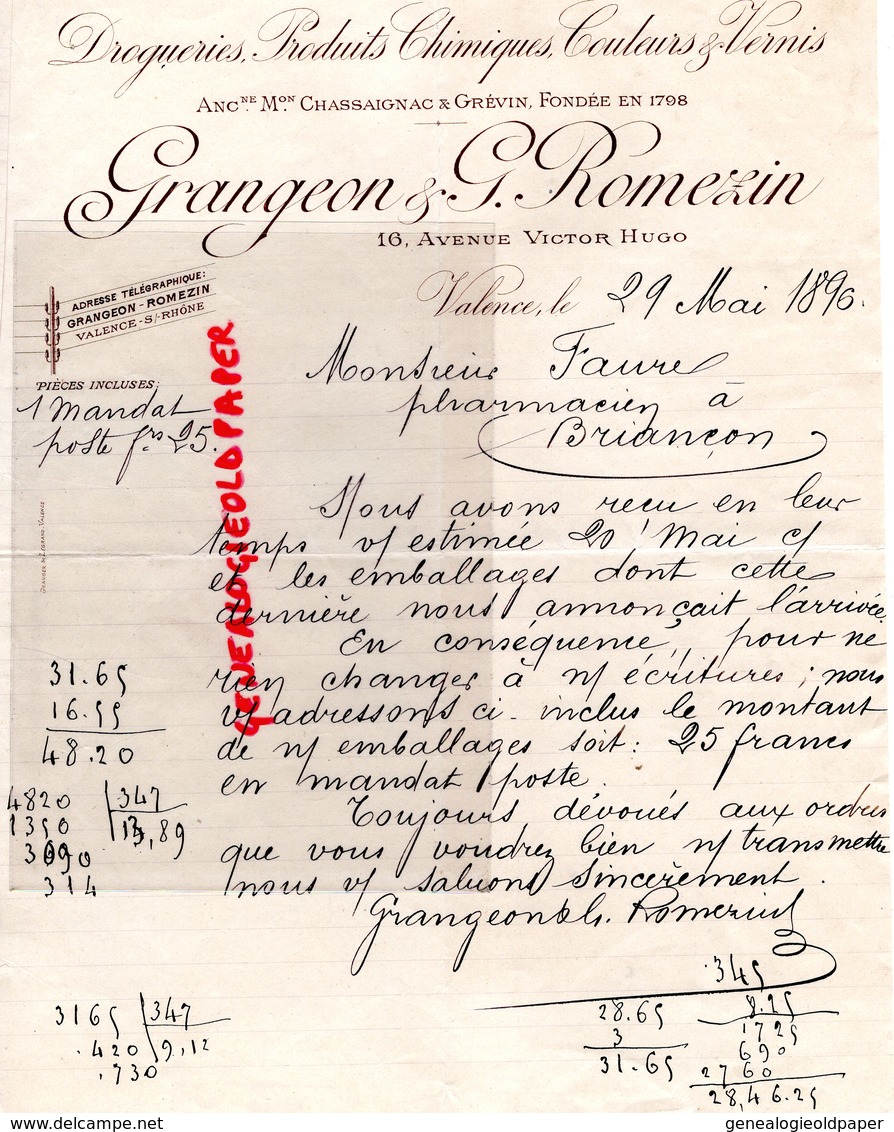 Drogueries, Produits Chimiques, Couleurs & Vernis
Anc.ne M.on Chassaignac & Grévin, Fondée en 1798
Grangeon & G. Romezin
16, Avenue Victor Hugo
ADRESSE TÉLÉGRAPHIQUE:
GRANGEON-ROMEZIN
VALENCE-S/-RHÔNE
Valence, le 29 Mai 1896.
PIÈCES INCLUSES;
1 Mandat
poste frs 25.
Monsieur Faure
pharmacien à
Briançon
Nous avons reçu en leur
temps v/ estimée 20 Mai c/
et les emballages dont cette
dernière nous annonçait l'arrivée.
En conséquence, pour ne
rien changer à n/ écritures ; nous
v/ adressons ci-inclus le montant
de n/ emballages soit: 25 francs
en mandat poste.
Toujours dévoués aux ordres
que vous voudrez bien n/ transmettre
nous v/ saluons sincèrement.
Grangeon & G. Romezin
GRANGER & LEGRAND-VALENCE
GENEALOGIEOLDPAPER
31.65
16.55
48.20
4820 347
1350 13,89
3090
314
3165 347
.420 9,12
.730
28.65
3
31.65
345
8.25
1725
690
2760
28,46.25
genealogieoldpaper